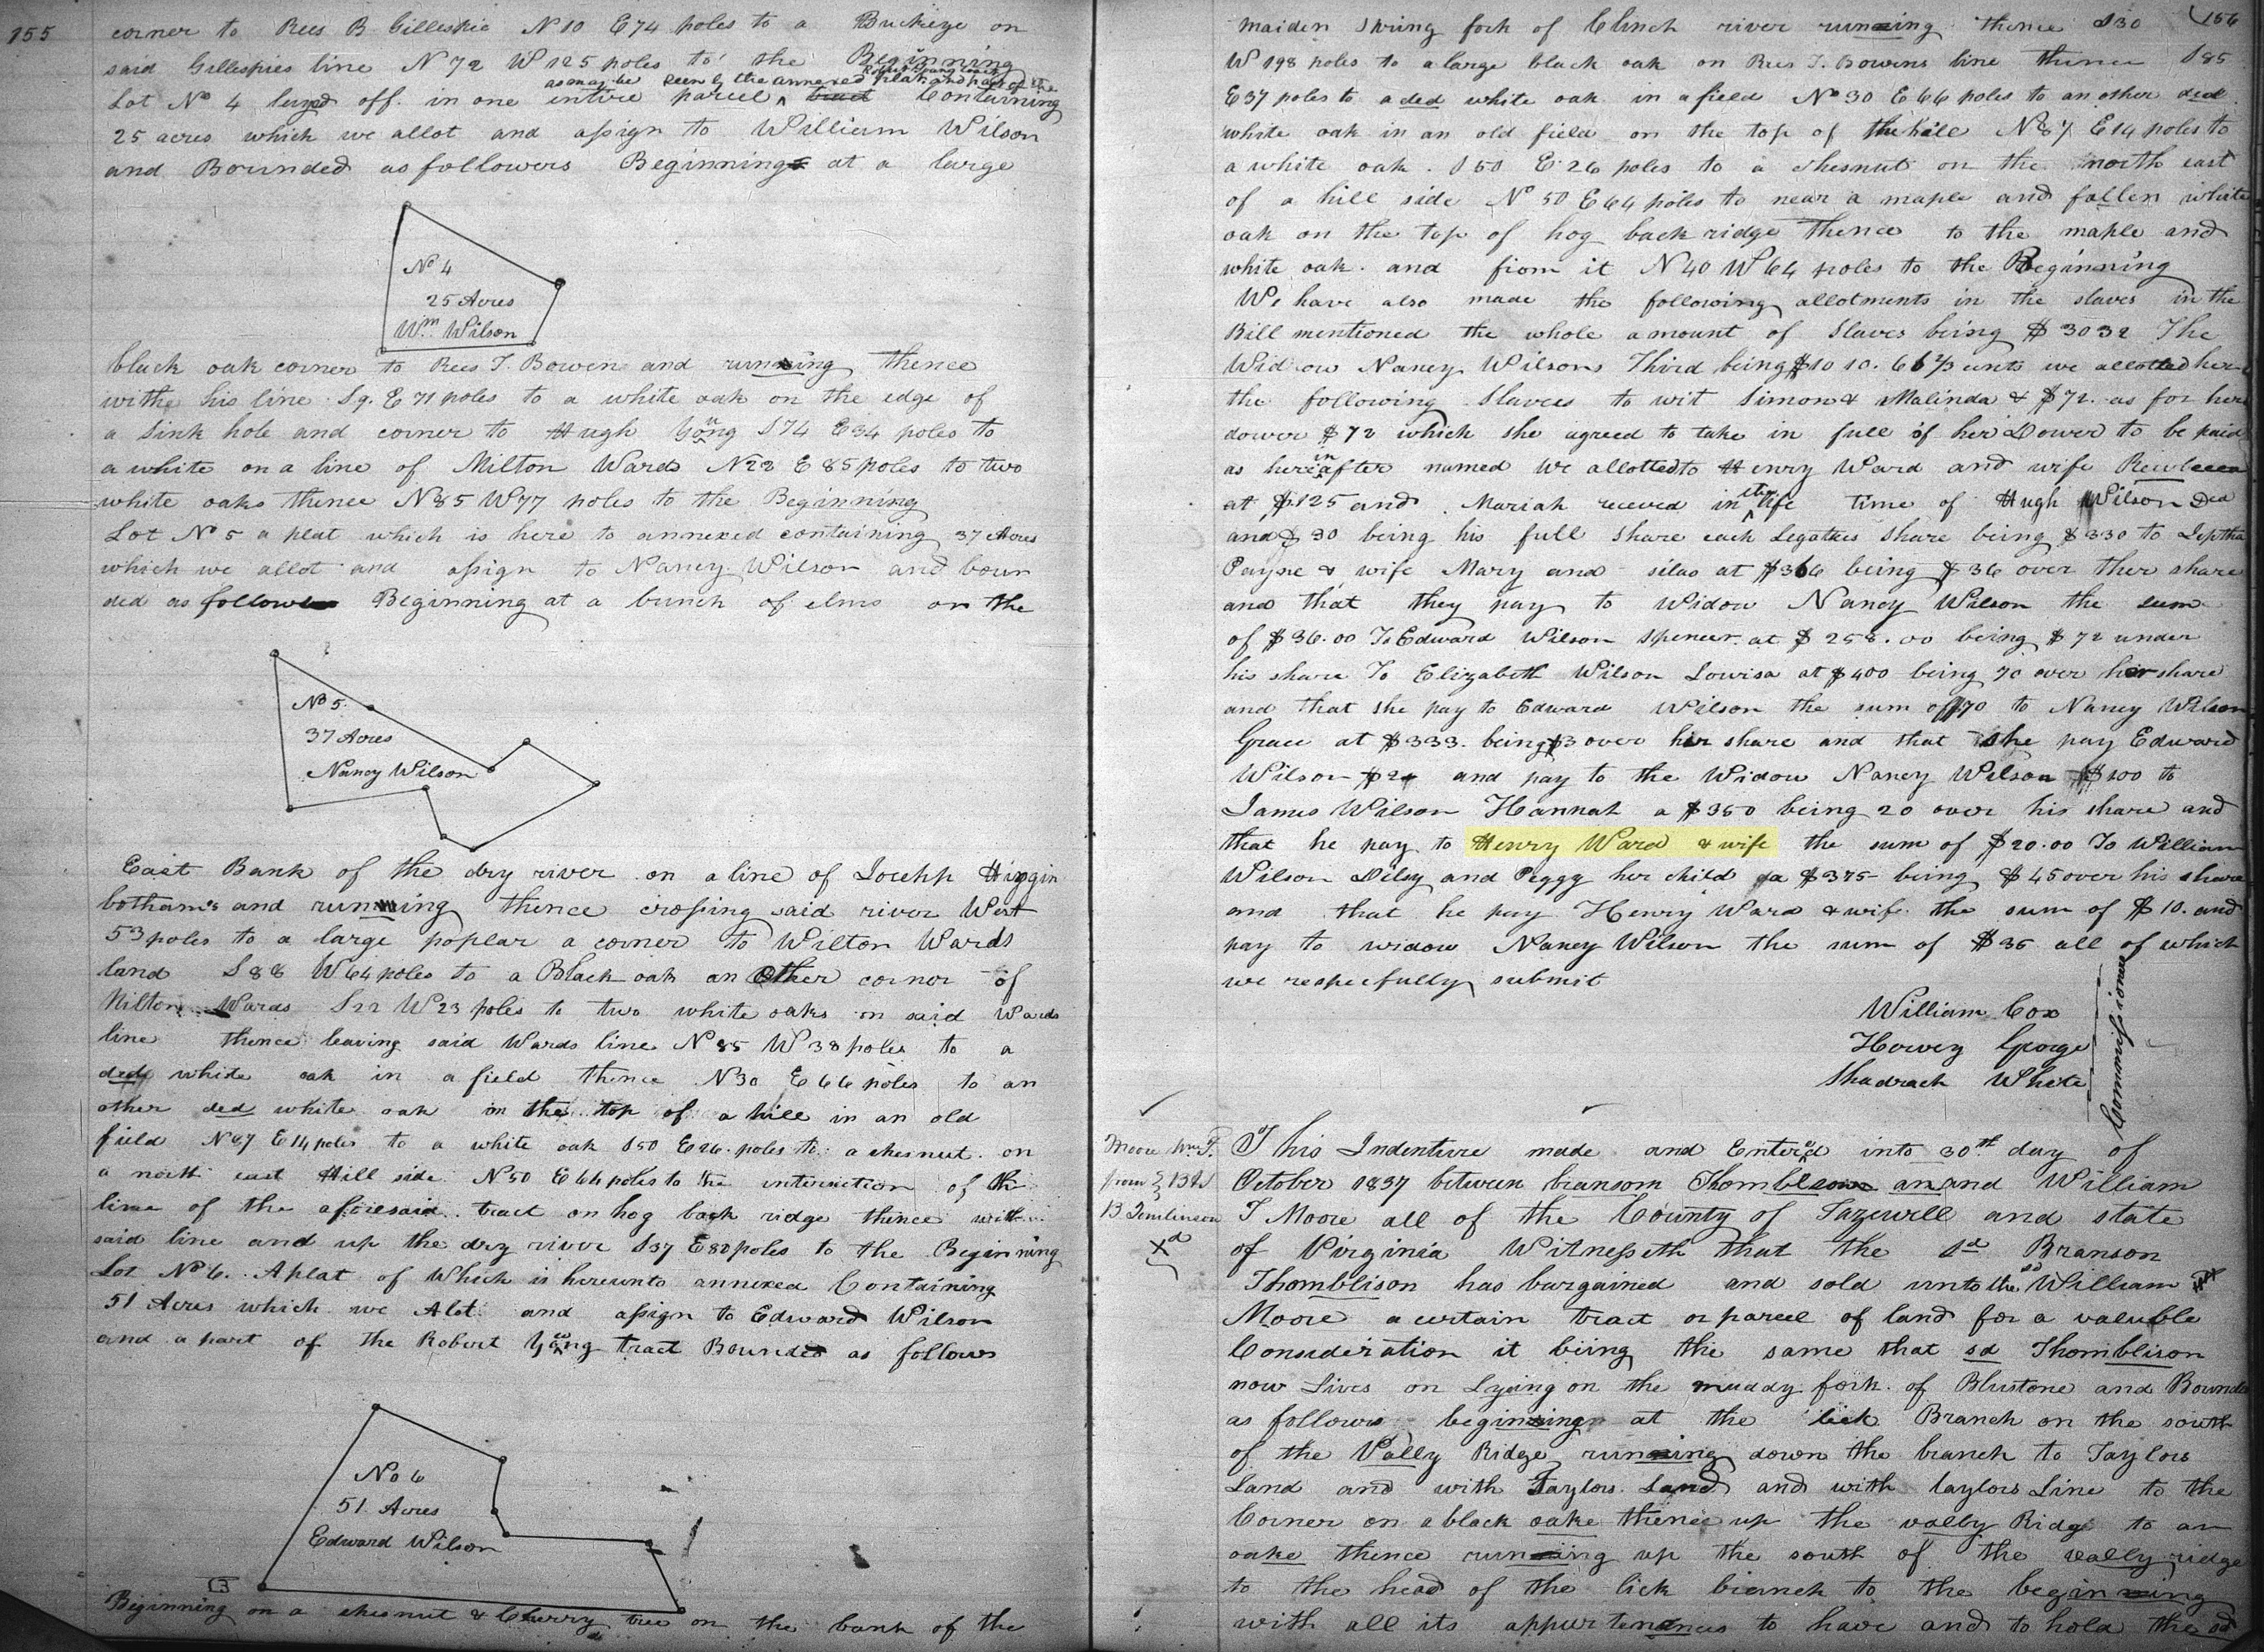 155
corner to Rees B. Gillespie N 10 E 74 poles to a Buckeye on
said Gillespies line N 72 W 125 poles to the Beginning
as may be seen by the annexed plat and part of the
Lot No 4 layed off in one entire parcel ^ tract Containing
25 acres which we allot and assign to William Wilson
and Bounded as followers Beginning at a large
No 4
25 Acres
Wm Wilson
black oak corner to Rees T. Bowen and running thence
withe his line S 9. E 71 poles to a white oak on the edge of
a sink hole and corner to Hugh Young S 74 E 34 poles to
a white on a line of Milton Wards N 22 E 85 poles to two
white oaks thence N 85 W 77 poles to the Beginning
Lot No 5 a plat which is here to annexed containing 37 Acres
which we allot and assign to Nancy Wilson and boun
ded as follows Beginning at a bunch of elms on the
No 5.
37 Acres
Nancy Wilson
East Bank of the dry river on a line of Joseph Higgin
botham's and running thence crossing said river West
53 poles to a large poplar a corner to Wilton Wards
land S 88 W 64 poles to a Black oak an other cornor of
Milton Wards S 22 W 23 poles to two white oaks on said Wards
line thence leaving said Wards line N 85 W 38 poles to a
ded white oak in a field thence N 30 E 66 poles to an
other ded white oak in the top of a hill in an old
field N 87 E 14 poles to a white oak S 50 E 26. poles to a chesnut on
a north east Hill side N 50 E 64 poles to the intersection of the
line of the aforesaid tract on hog back ridge thence with
said line and up the dry river S 37 E 80 poles to the Beginning
Lot No 6. A plat of which is hereunto annexed Containing
51 Acres which we Alot and assign to Edward Wilson
and a part of the Robert Young tract Bounded as follows
No 6
51 Acres
Edward Wilson
Beginning on a chesnut & Cherry tree on the bank of the
156
maiden Spring fork of Clinch river running thence S 30
W 198 poles to a large black oak on Rees T. Bowens line thence S 85
E 37 poles to a ded white oak in a field No 30 E 66 poles to an other ded
white oak in an old field on the top of the hill N 87 E 14 poles to
a white oak. S 50 E 26 poles to a chesnut on the north east
of a hill side No 50 E 64 poles to near a maple and fallen white
oak on the top of hog back ridge Thence to the maple and
white oak. and from it N 40 W 64 poles to the Beginning
We have also made the following allotments in the slaves in the
Bill mentioned the whole amount of Slaves being $ 3032 The
Widow Nancy Wilsons Third being $10 10. 66 2/3 cents we allotted her
the following Slaves to wit Simon & Malinda & $72. as for her
dower $72 which she agreed to take in full of her Dower to be paid
as hereinafter named We allotted to Henry Ward and wife Rewbecca
at $125 and Mariah receved in the life time of Hugh Wilson Ded
and $ 30 being his full share each Legatees share being $330 to Leptha
Payne & wife Mary and silas at $366 being $36 over ther share
and that they pay to Widow Nancy Wilson the sum
of $36.00 To Edward Wilson Spencer at $ 258.00 being $72 under
his share To Elizabeth Wilson Lowisa at $400 being 70 over her share
and that she pay to Edward Wilson the sum of $70 to Nancy Wilson
Grace at $333. being $3 over her share and that she pay Edward
Wilson $2 and pay to the Widow Nancy Wilson $100 to
James Wilson Hannah a $350 being 20 over his share and
that he pay to Henry Ward & wife the sum of $20.00 To William
Wilson Dilsy and Peggy her child a $375 being $45 over his share
and that he pay Henry Ward & wife the sum of $10. and
pay to widow Nancy Wilson the sum of $35 all of which
we respecfully submit
William Cox
Harvey George
Shadrach White
Commissioners
Moore Wm T.
from } B & S
B Tomlinson
Xd
This Indenture made and Entered into 30th day of
October 1837 between branson Thomblson an and William
T Moore all of the County of Tazewell and state
of Virginia Witnesseth that the sd Branson
Thomblison has bargained and sold unto the sd William
Moore a certain tract or parcel of land for a valuble
Consideration it being the same that sd Thomblison
now Lives on Lying on the muddy fork of Blustone and Bounded
as follows begining at the lick Branch on the south
of the Vally Ridge running down the branch to Taylors
Land and with Taylors Land and with taylors Line to the
Corner on a black oake thence up the vally Ridge to an
oake thence running up the south of the vally ridge
to the head of the lick branch to the beginning
with all its appurtenances to have and to hold the sd